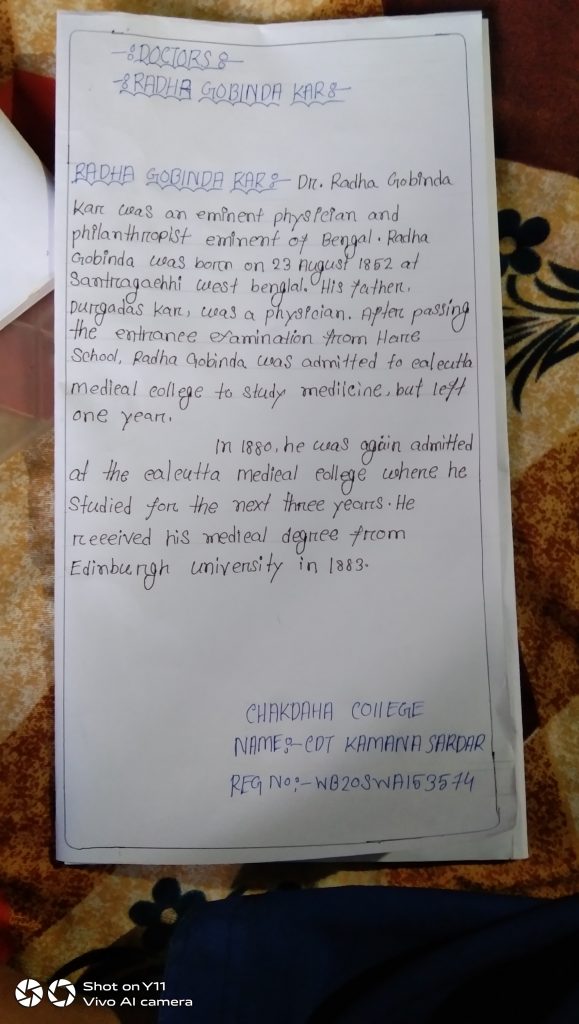 -:DOCTORS:-
-:RADHA GOBINDA KAR:-
RADHA GOBINDA KAR:- Dr. Radha Gobinda
Kar was an eminent physician and
philanthropist eminent of Bengal. Radha
Gobinda was born on 23 August 1852 at
Santragachhi west benglal. His father,
Durgadas Kar, was a physician. After passing
the entrance examination from Hare
School, Radha Gobinda was admitted to calcutta
medical college to study medilcine, but left
one year.
In 1880, he was again admitted
at the calcutta medical college where he
studied for the next three years. He
received his medical degree from
Edinburgh university in 1883.
CHAKDAHA COllEGE
NAME:- CDT KAMANA SARDAR
REG NO:- WB20SWA153574
Shot on Y11
Vivo AI camera